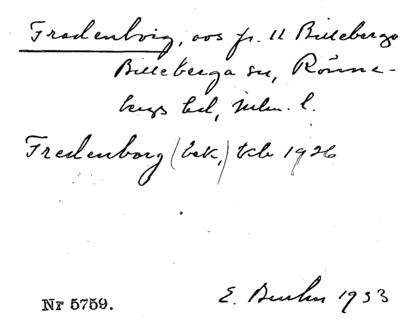 Fredenborg, avs fr. 11 Billeberga
Billeberga sn, Rönne-
bergs hd, Malm. l.
Fredenborg (bek,) tkb 1926
Nr 5759. E. 1933